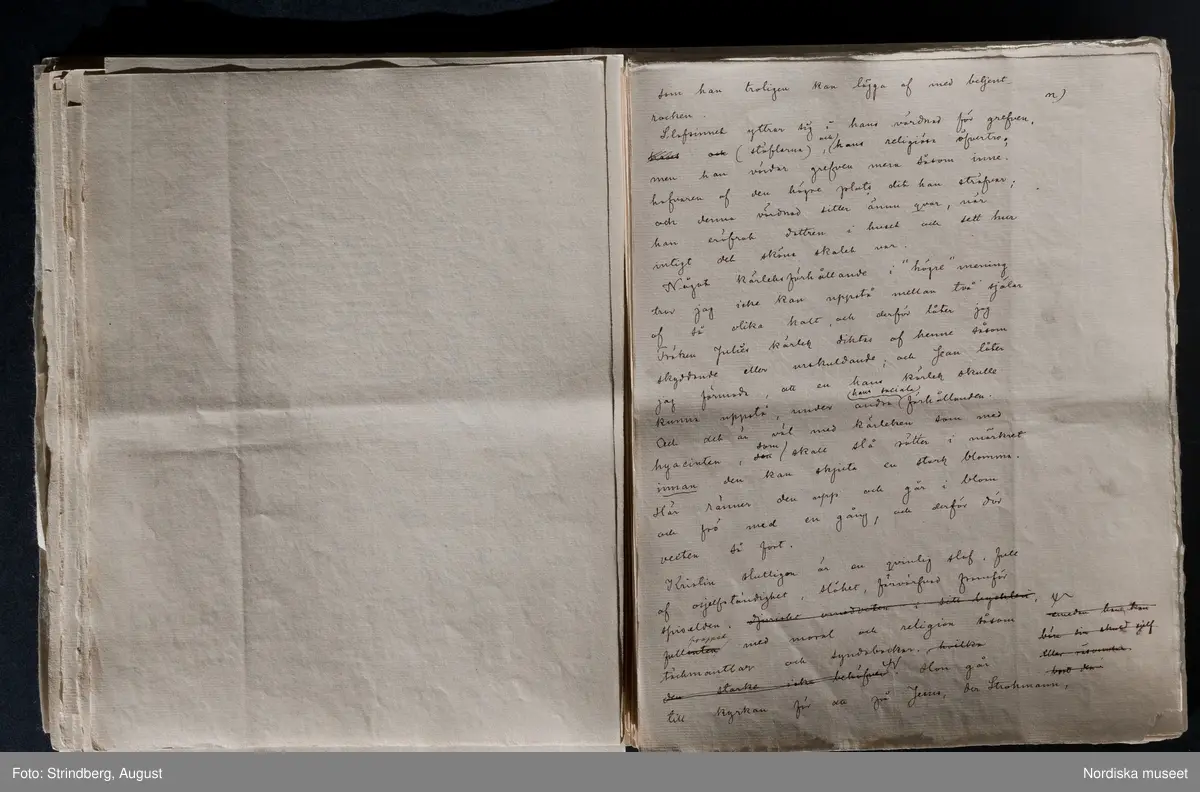 som han troligen kan lägga af med betjent-
rocken.
n)
Slafsinnet yttrar sig i hans vördnad för grefven,
och (stöflarna) och hans religiösa öfvertro;
men han vördar grefven mera såsom inne-
hafvaren af den högre plats dit han sträfvar;
och denna vördnad sitter ännu qvar, när
han eröfrat dottren i huset och sett hur
intigt det sköna skalet var.
Något kärleksförhållande i "högre" mening
tror jag icke kan uppstå mellan två själar
af så olika halt, och derför låter jag
Fröken Julies kärlek diktas af henne såsom
skyddande eller urskuldande; och Jean låter
jag förmoda, att en hans kärlek skulle
kunna uppstå, under andra hans sociala förhållanden.
Och det är väl med kärleken som med
hyacinten, som skall slå rötter i mörkret
innan den kan skjuta en stark blomma.
Här ränner den upp och går i blom
och frö med en gång, och derför dör
vexten så fort.
Kristin slutligen är en qvinlig slaf. Full
af osjelfständighet, slöhet, förvärfvad framför
spiselden, djuriskt omedveten i sitt hyckleri,
fullproppad med moral och religion såsom
täckmantlar och syndabockar. hvilka
den starke icke behöfver. Hon går
till kyrkan för att på Jesus, der Strohmann,
emedan hon kan
bär sin skuld sjelf
eller
bort dem
Foto: Strindberg, August
Nordiska museet